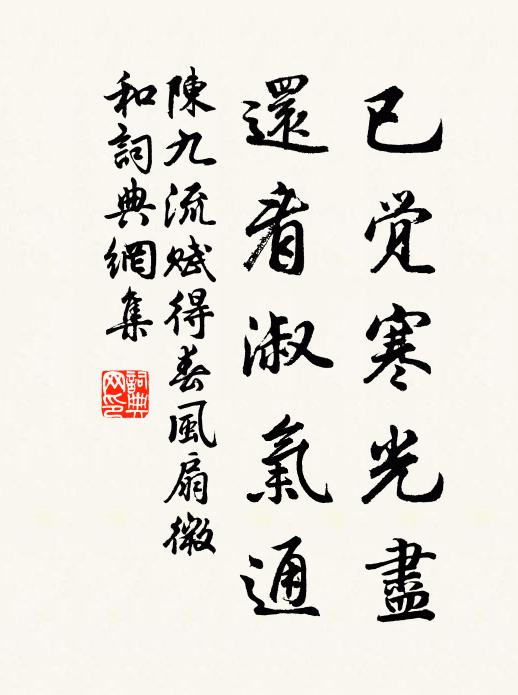 已觉寒光盡
還看淑氣通
陳九流赋得春風扇微
和詞典網集
詞典
网印